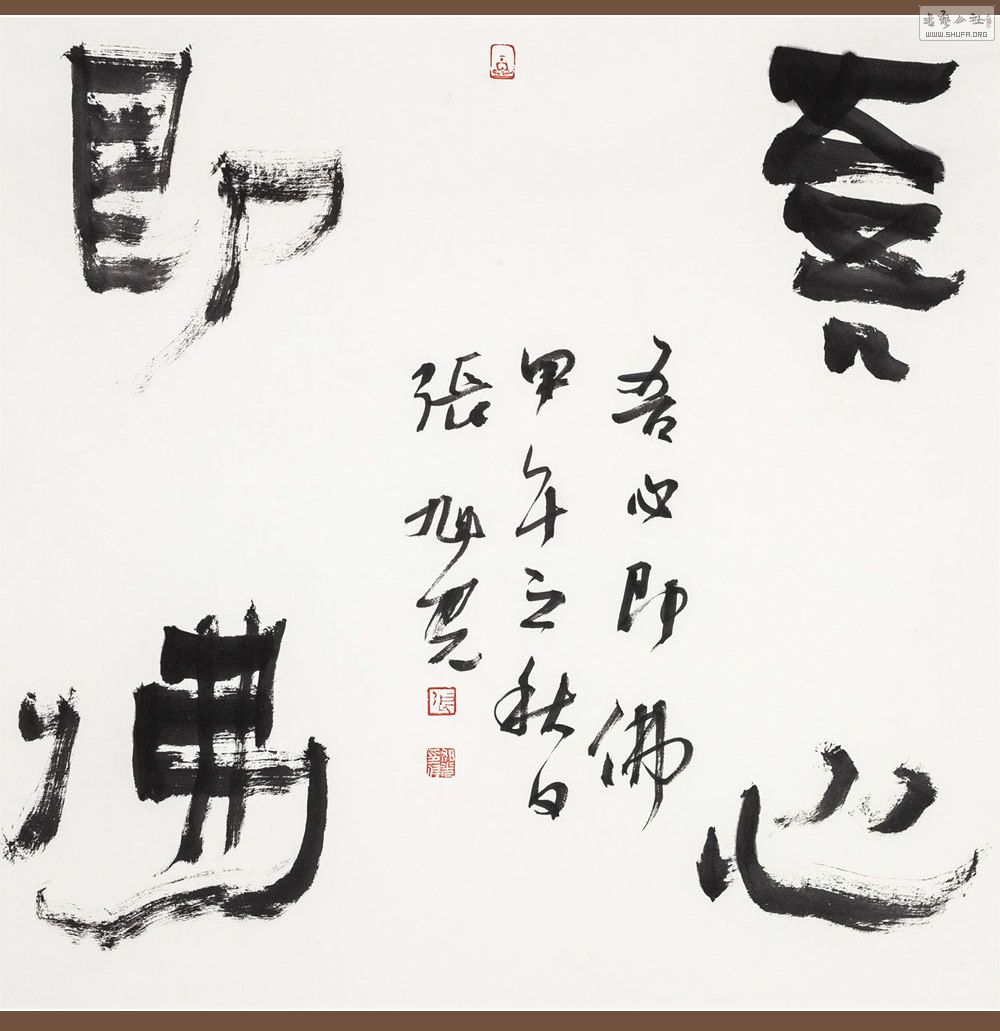 吾心
即佛
吾心即佛
甲午之秋日
張旭光
張
书艺公社
WWW.SHUFA.ORG